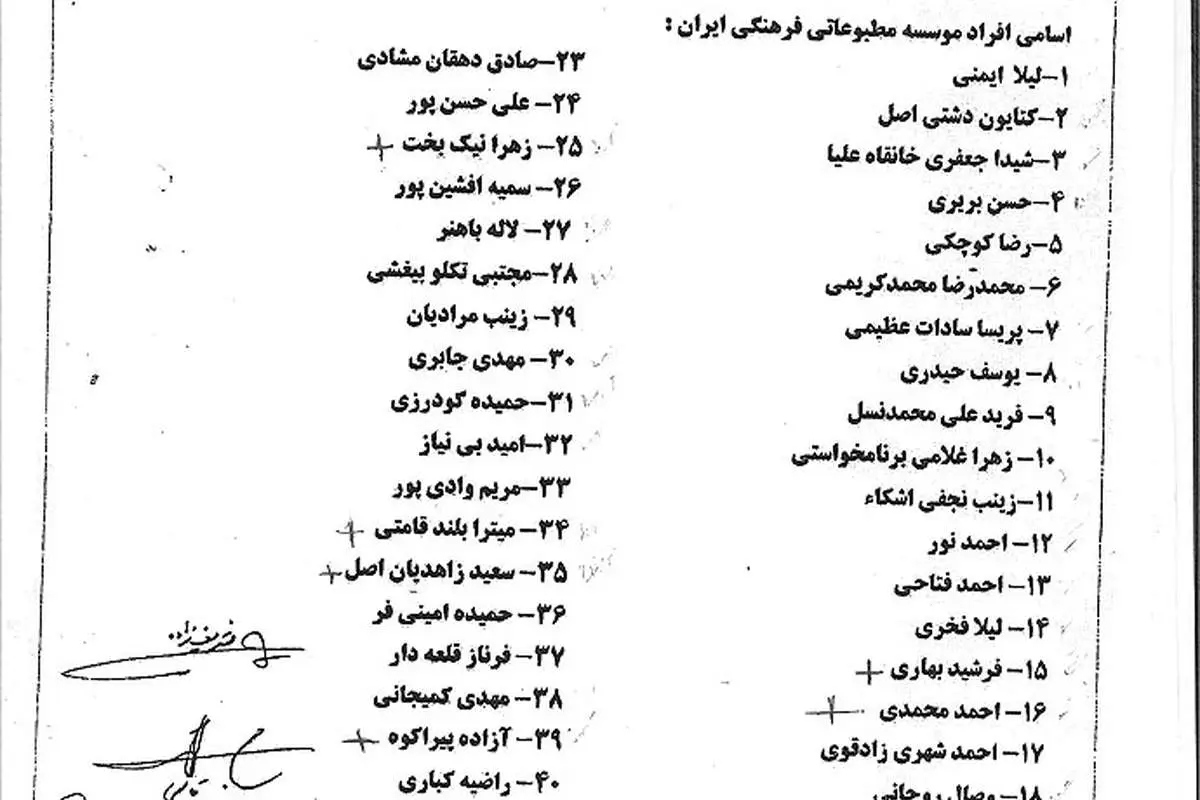 اسامی افراد موسسه مطبوعاتی فرهنگی ایران :
۱-لیلا ایمنی
۲-کتایون دشتی اصل
۳-شیدا جعفری خانقاه علیا
۴-حسن بریری
۵-رضا کوچکی
۶- محمدرضا محمدکریمی
۷- پریسا سادات عظیمی
۸- یوسف حیدری
۹- فرید علی محمدنسل
۱۰- زهرا غلامی برنامخواستی
۱۱-زینب نجفی اشکاء
۱۲- احمد نور
۱۳- احمد فتاحی
۱۴- لیلا فخری
۱۵- فرشید بهاری
۱۶- احمد محمدی
۱۷- احمد شهری زادقوی
۱۸- وصال روحانی
۲۳-صادق دهقان مشادی
۲۴- علی حسن پور
۲۵- زهرا نیک بخت
۲۶- سمیه افشین پور
۲۷- لاله باهنر
۲۸-مجتبی تکلو بیغشی
۲۹- زینب مرادیان
۳۰- مهدی جابری
۳۱-حمیده گودرزی
۳۲-امید بی نیاز
۳۳-مریم وادی پور
۳۴- میترا بلند قامتی
۳۵- سعید زاهدیان اصل
۳۶- حمیده امینی فر
۳۷- فرناز قلعه دار
۳۸- مهدی کمیجانی
۳۹- آزاده پیراکوه
۴۰- راضیه کباری